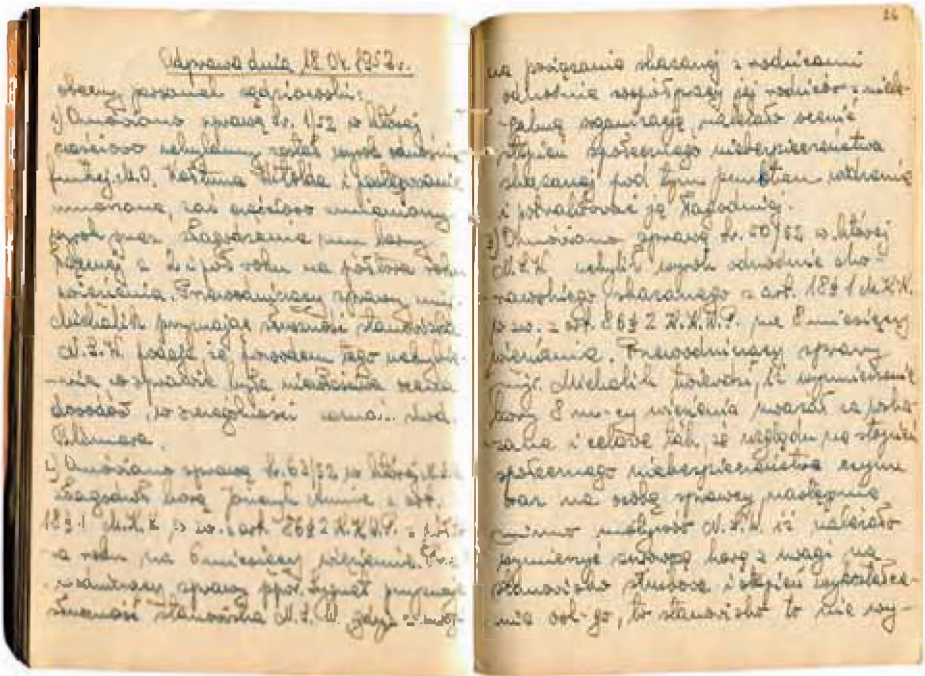 Odprawa dnia 18.04.1952 r.
obecny personel sędziowski:
1) Omówiono sprawę Sr. 1/52 w której
częściowo uchylony został wyrok odnośnie
funkcj. M.O. Witolda i postępowanie
umorzono, zaś częściowo zmieniony
wyrok przez złagodzenie kary
z 2 i pół roku na półtora roku
więzienia. Przewodniczący sprawy mjr.
Michalik przyznając słuszność stanowiska
N.S.W. podaje że powodem tego uchyle-
-nia w sprawie była niewłaściwa ocena
dowodów, w szczególności
2) Omówiono sprawę Sr. 63/52 w której N.S.W.
złagodził karę z art.
18 § 1 M.K.K. w zw. z art. 86 § 2 K.K.W.P. z
-a roku na 6 miesięcy więzienia.
sprawy ppor. przyznaje
słuszność stanowiska N.S.W. gdyż z uwagi
26
na powiązania skazanej z rodzicami
odnośnie współpracy jej rodziców z niele-
-galną organizacją, należało ocenić
stopień społecznego niebezpieczeństwa
skazanej pod tym punktem widzenia
i potraktować ją łagodniej.
3) Omówiono sprawę Sr. 50/52 w której
N.S.W. uchylił wyrok odnośnie
skazanego z art. 18 § 1 M.K.K.
w zw. z art. 86 § 2 K.K.W.P. na 8 miesięcy
więzienia. Przewodniczący sprawy
mjr. Michalik twierdzi, iż wymierzenie
kary 8 m-cy więzienia uważał za wska-
zane i celowe tak, ze względu na stopień
społecznego niebezpieczeństwa czynu
oraz na osobę sprawcy następnie
mimo N.S.W. iż należało
wymierzyć surowszą karę z uwagi na
stanowisko służbowe i stopień wykształce-
-nia osk-go, to stanowisko to nie wy-